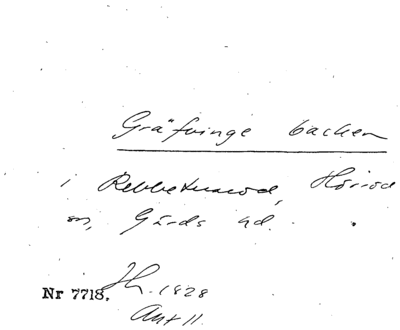 Gräfvinge backen
i Rebbetuaröd, Hörröd
sn, Gärds hd.
Nr 7718. 1828
Ant 11.